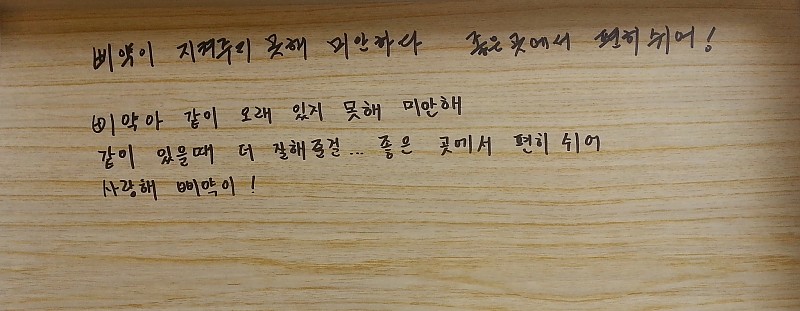 삐약이 지켜주지 못해 미안하다 좋은곳에서 편히쉬어!
삐약아 같이 오래 있지 못해 미안해
같이 있을때 더 잘해줄걸... 좋은 곳에서 편히 쉬어
사랑해 삐약이!